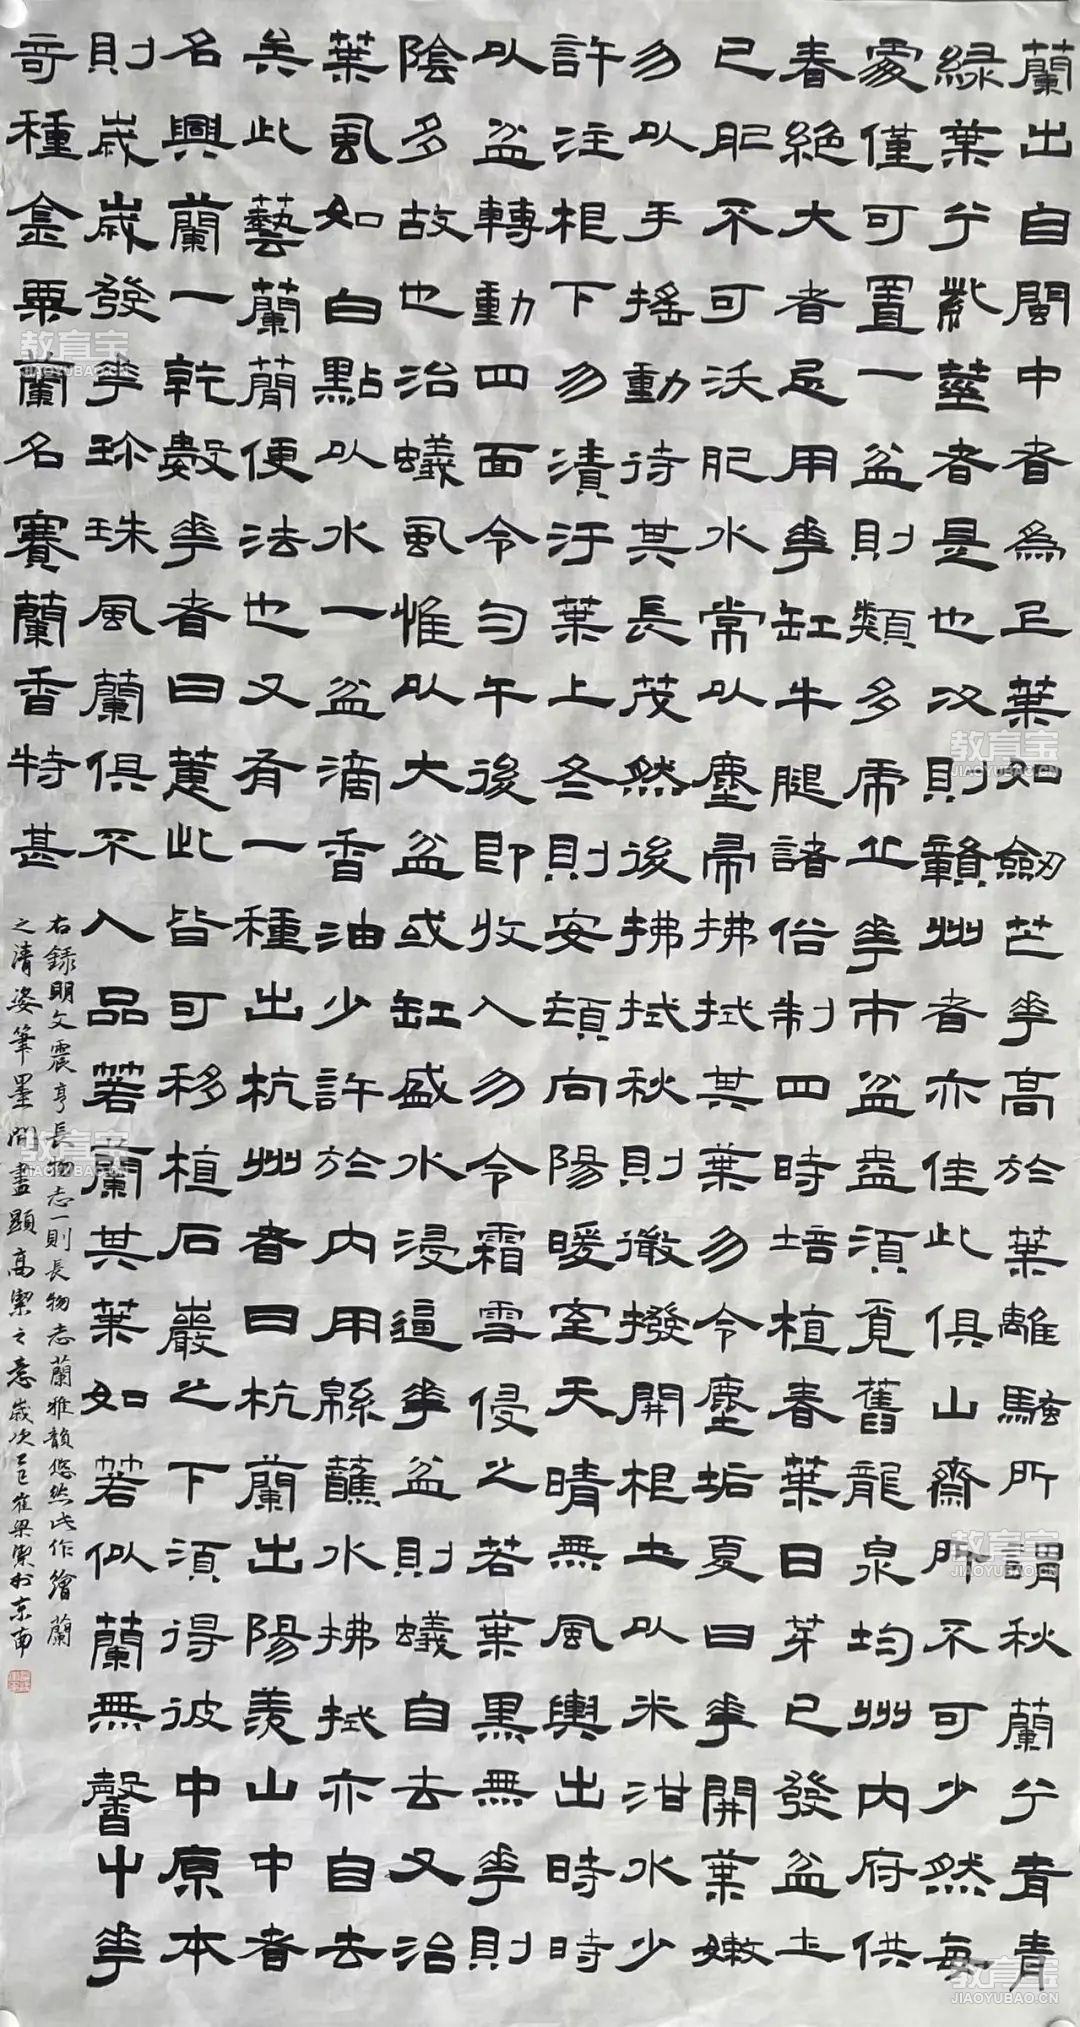 蘭出自閩中者為上葉如劔芒花高於葉離騷所謂秋蘭兮青青
綠葉兮紫莖者是也次則贛州者亦佳此俱山齋所不可少然每
處僅可置一盆則類多虎丘花市盆盎須覓舊龍泉均州內府供
春絕大者忌用花缸牛腿諸俗制四時培植春葉日芽已發盆土
已肥不可沃肥水常以塵帚拂拭其葉勿令塵垢夏日花開葉嫩
勿以手搖動待其長茂然後拂拭秋則微撥開根土以米泔水少
許注根下勿漬汙葉上冬則安頓向陽暖室天晴無風輿出時時
以盆轉動四面令勻午後即收入勿令霜雪侵之若葉黑無花則
陰多故也治蟻虱惟以大盆或缸盛水浸逼花盆則蟻自去又治
葉虱如白點以水一盆滴香油少許於內用綿蘸水拂拭亦自去
矣此藝蘭簡便法也又有一種出杭州者曰杭蘭出陽羨山中者
名興蘭一乾數花者曰蕙此皆可移植石巖之下須得彼中原本
則歲歲發花珍珠風蘭俱不入品箬蘭其葉如箬似蘭無馨草花
奇種金粟蘭名賽蘭香特甚
右錄明文震亨長物志一則長物志蘭雅韻悠然此作繪蘭
之清姿筆墨間盡顯高潔之意歲次乙巳崔梁潔於東南
教育宝
JIAOYUBAO.CN
教育宝
JIAOYUBAO.CN
教育宝
JIAOYUBAO.CN
教育宝
JIAOYUBAO.CN
教育宝
JIAOYUBAO.CN